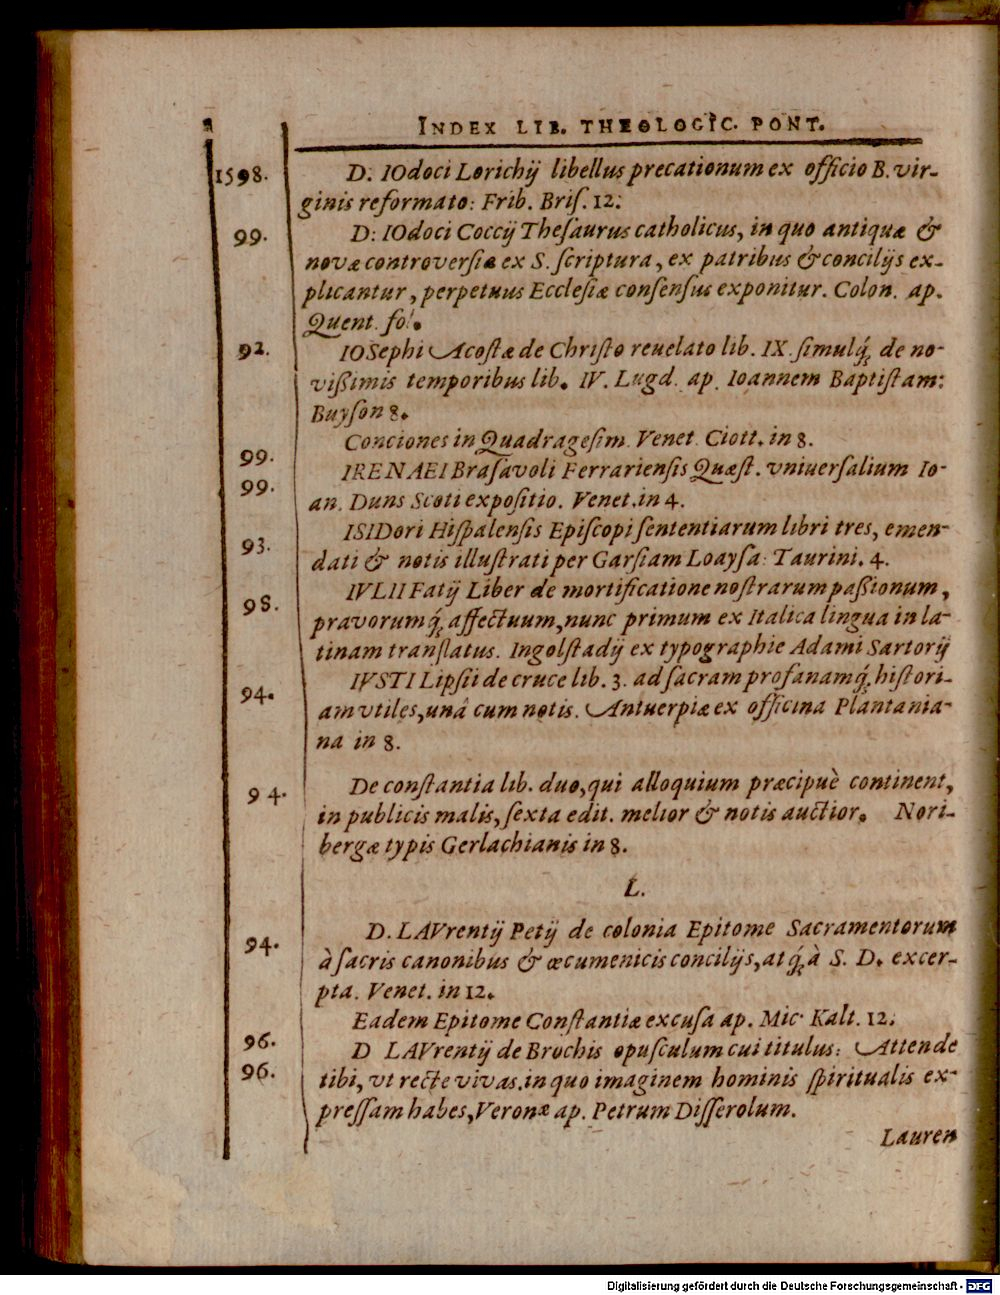 INDEX LIB. THEOLOGIC. PONT.
1598. D. IOdoci Lorichij libellus precationum ex officio B. vir-
ginis reformato: Frib. Briſ. 12.
99. D: IOdoci Coccij Theſaurus catholicus, in quo antiquæ &
novæ controverſiæ ex S. ſcriptura, ex patribus & concilijs ex-
plicantur, perpetuus Eccleſiæ conſenſus exponitur. Colon. ap.
Quent. fol.
92. IOSephi Acoſtæ de Chriſto reuelato lib. IX. ſimulq́; de no-
vißimis temporibus lib. IV. Lugd. ap. Ioannem Baptiſtam:
Buyſon 8.
Conciones in Quadrageſim. Venet. Ciott. in 8.
99. IRENAEI Braſavoli Ferrarienſis Quæſt. vniuerſalium Io-
99. an. Duns Scoti expoſitio. Venet. in 4.
ISIDori Hiſpalenſis Epiſcopi ſententiarum libri tres, emen-
93. dati & notis illuſtrati per Garſiam Loayſa: Taurini. 4.
IVLII Fatij Liber de mortificatione noſtrarum paßionum,
98. pravorumq́; affectuum, nunc primum ex Italica lingua in la-
tinam tranſlatus. Ingolſtadij ex typographie Adami Sartorij
94. IVSTI Lipſii de cruce lib. 3. ad ſacram profanamq́; hiſtori-
am vtiles, unâ cum notis. Antuerpiæ ex officina Plantania-
na in 8.
94. De conſtantia lib. duo, qui alloquium præcipuè continent,
in publicis malis, ſexta edit. melior & notis auctior. Nori-
bergæ typis Gerlachianis in 8.
L.
94. D. LAVrentij Petij de colonia Epitome Sacramentorum
à ſacris canonibus & œcumenicis concilijs, atq́; à S. D. excer-
pta. Venet. in 12.
Eadem Epitome Conſtantiæ excuſa ap. Mic. Kalt. 12.
96. D LAVrentij de Brochis opuſculum cui titulus: Attende
96. tibi, vt recte vivas. in quo imaginem hominis ſpiritualis ex-
preſſam habes, Veronæ ap. Petrum Diſſerolum.
Lauren
Digitalisierung gefördert durch die Deutsche Forschungsgemeinschaft - DFG